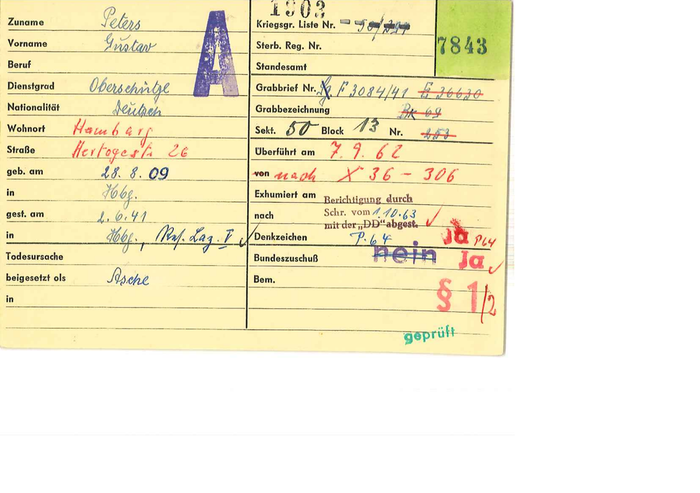 1903
Zuname Peters
Vorname Gustav
Beruf
Dienstgrad Oberschütze
Nationalität Deutsch
Wohnort Hamburg
Straße 26
geb. am 28.8.09
in Hbg.
gest. am 2.6.41
in Hbg., Res. Laz. V
Todesursache
beigesetzt als Asche
in
A
Kriegsgr. Liste Nr.
Sterb. Reg. Nr.
Standesamt
7843
Grabbrief Nr. F 3084/41 36630
Grabbezeichnung 69
Sekt. 50 Block 13 Nr. 253
Überführt am 7.9.62
von nach X 36 - 306
Exhumiert am
nach
Berichtigung durch
Schr. vom 1.10.63
mit der „DD" abgest.
Denkzeichen P.64 Ja P64
Bundeszuschuß nein Ja
Bem. § 1/2
geprüft